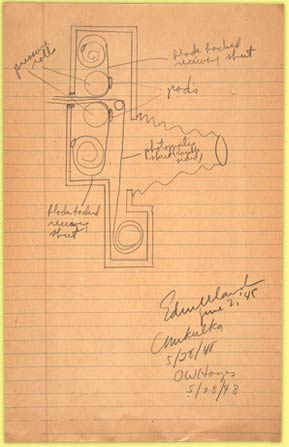 pressure
rolls
black backed
receiving sheet
pods
photosensitive
sheet (double
sided)
black backed
receiving
sheet
Edwin Land
June 2, '48
5/28/48
OW Hayes
5/28/48